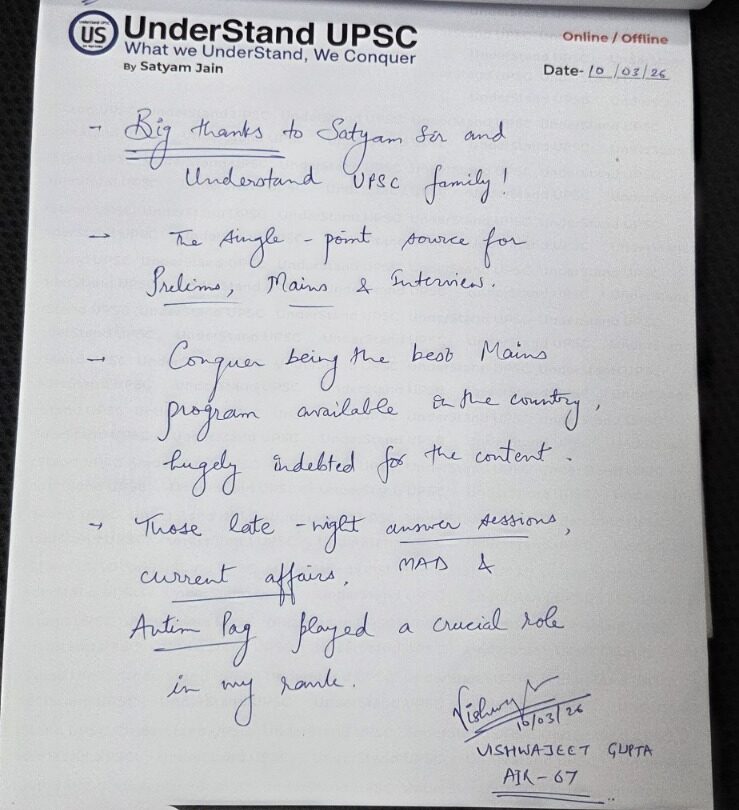 US
UnderStand UPSC
What we UnderStand, We Conquer
By Satyam Jain
Online / Offline
Date- 10 /03/26
→ Big thanks to Satyam Sir and
Understand UPSC family!
→ The single-point source for
Prelims, Mains & Interview.
→ Conquer being the best Mains
program available in the country,
hugely indebted for the content.
→ Those late-night answer sessions,
current affairs, MAD &
Antim Pag played a crucial role
in my rank.
10/03/26
VISHWAJEET GUPTA
AIR-67